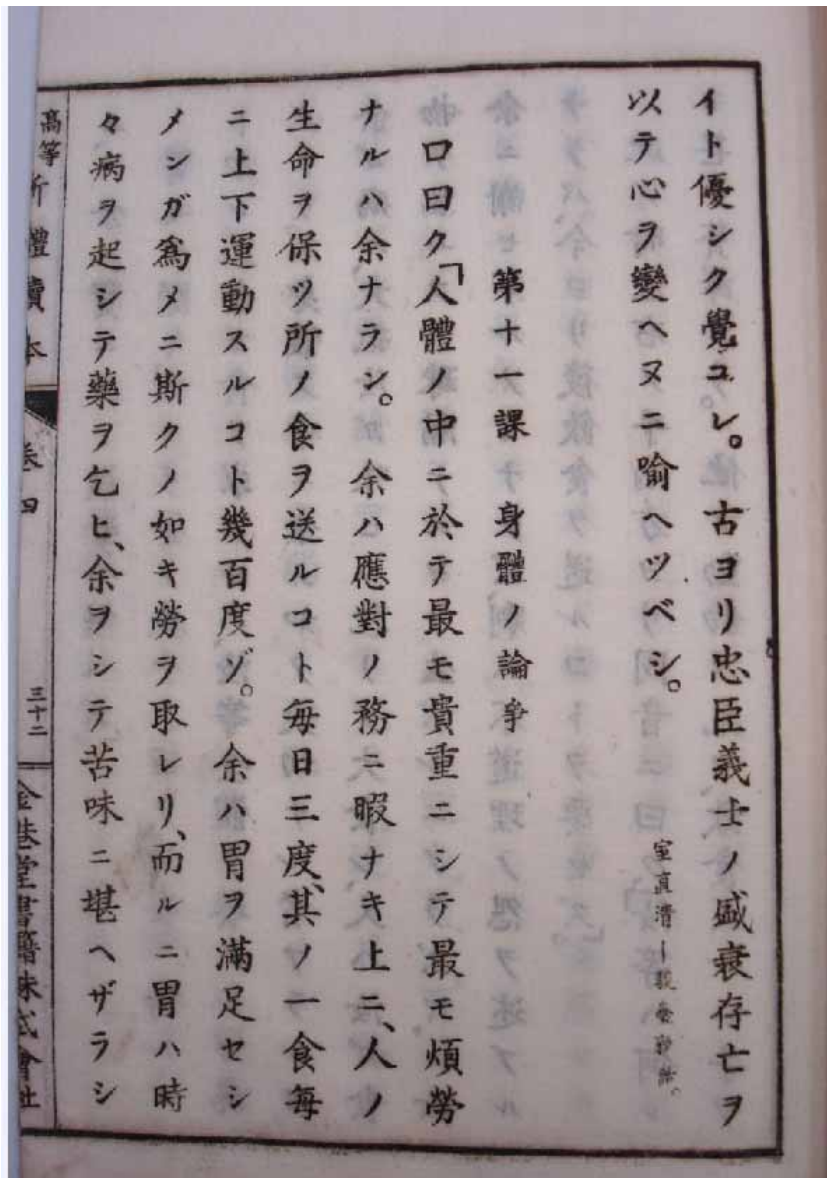 イト優シク覺ユレ。古ヨリ忠臣義士ノ盛衰存亡ヲ
以テ心ヲ變ヘヌニ喩ヘツベシ。
室直清
第十一課 身體ノ論爭
口曰ク「人體ノ中ニ於テ最モ貴重ニシテ最モ煩勞
ナルハ余ナラン。余ハ應對ノ務ニ暇ナキ上ニ、人ノ
生命ヲ保ツ所ノ食ヲ送ルコト每日三度、其ノ一食每
ニ上下運動スルコト幾百度ゾ。余ハ胃ヲ滿足セシ
メンガ爲メニ斯クノ如キ勞ヲ取レリ、而ルニ胃ハ時
々病ヲ起シテ藥ヲ乞ヒ、余ヲシテ苦味ニ堪ヘザラシ
高等新體讀本
卷四
三十二
金港堂書籍株式會社